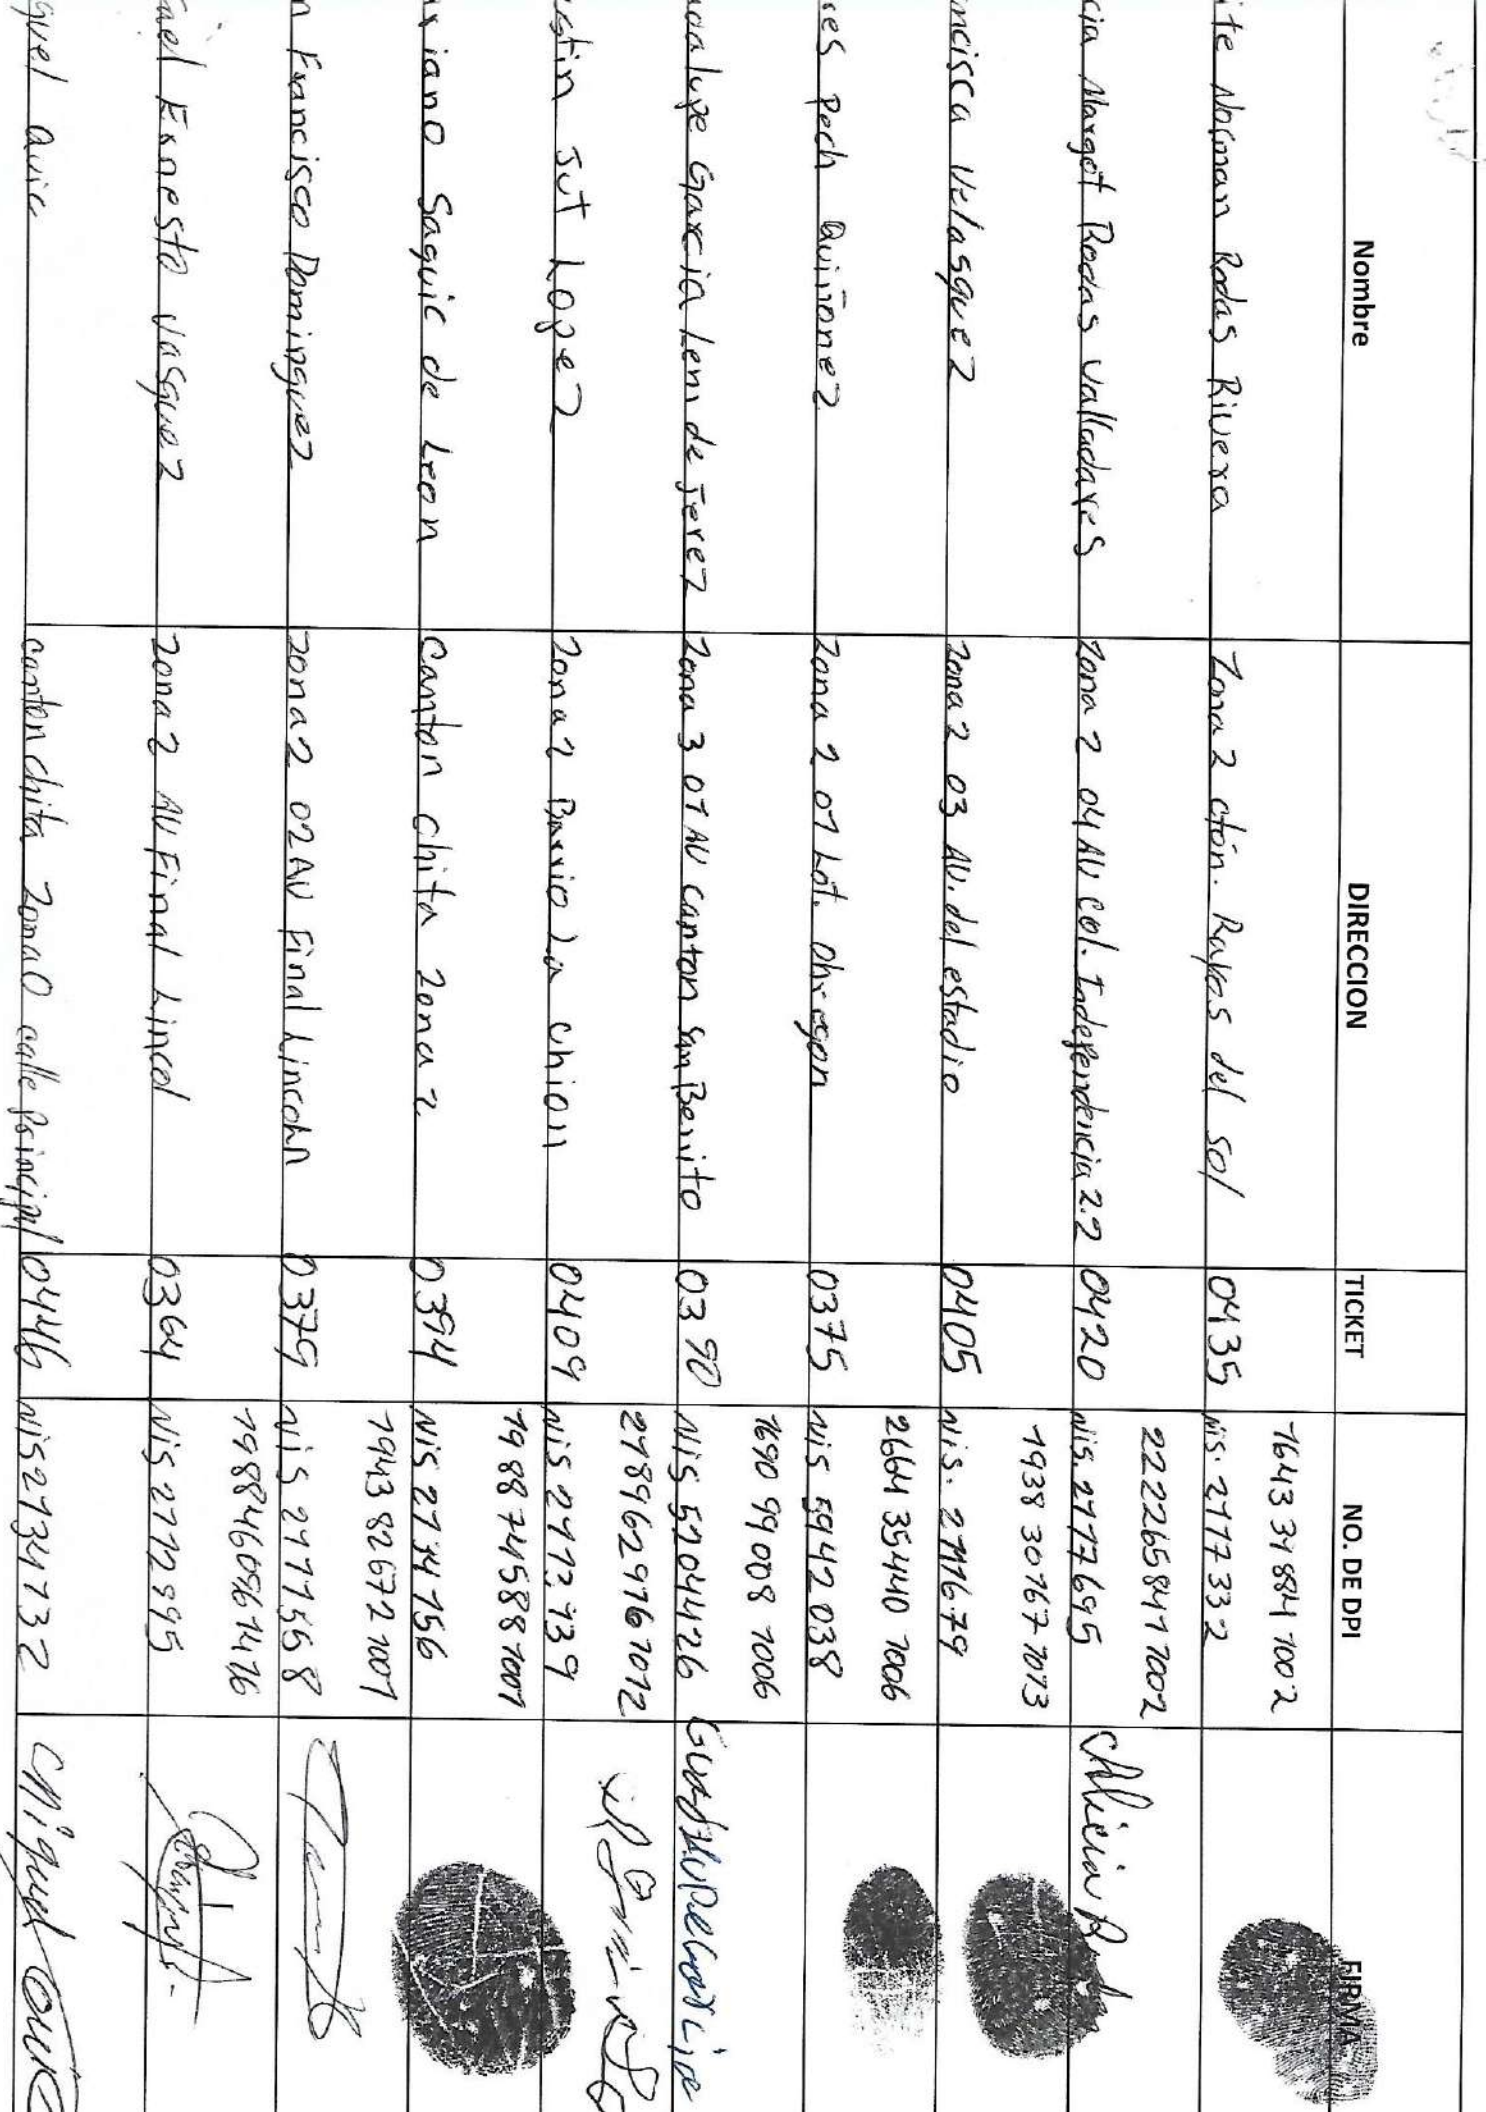 Nombre DIRECCION TICKET NO. DE DPI FIRMA
ite Norman Rodas Rivera Zona 2 ctón. Rayos del sol 0435 1643 34 884 1002
Nis. 2177332
cia Margot Rodas Valladares Zona 2 04 AV Col. Independencia 2.2 0420 2222658471002
Nis. 2177695 Alicia R
ncisca Velasquez Zona 2 03 AV. del estadio 0405 1938 30767 1013
Nis. 2171679
ses Pech Quiñonez Zona 2 01 Lot. Obregon 0375 2664 35440 1006
Nis 5942038
adalupe Garcia Lem de Jerez Zona 3 01 AV canton San Benito 0390 1690 99008 1006
Nis 5204426 Guadalupe Garcia
stin Jut Lopez Zona 2 Barrio La Chion 0409 2189629761012
Nis 2173739
xiano Saquic de Leon Canton Chita Zona 2 0394 1988745881001
Nis 2734756
n Francisco Dominguez Zona 2 02 AV Final Lincohn 0379 1943826721001
Nis 2171568
fael Ernesto Vasquez Zona 2 AV Final Lincol 0364 1988460961416
Nis 2172995
guel Quic canton chita Zona 0 calle Principal 0446 Nis 2734732 Miguel Quic